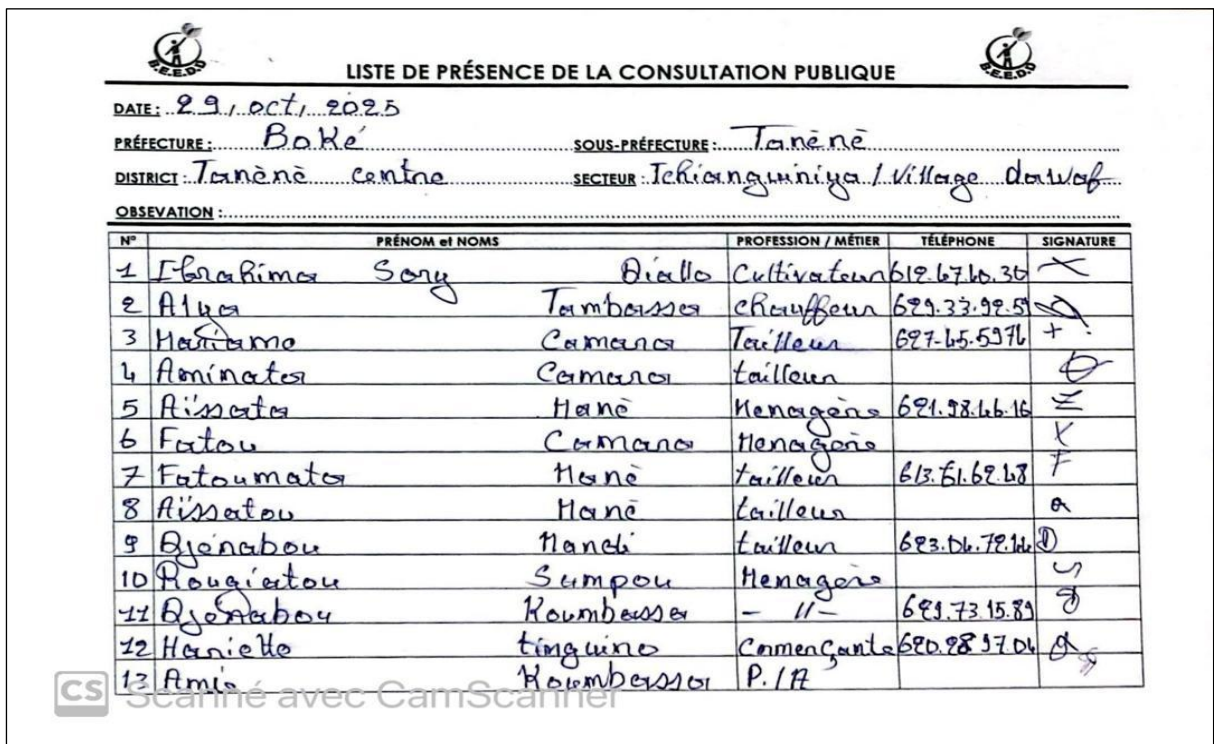 B.E.E.D.D
B.E.E.D.D
LISTE DE PRÉSENCE DE LA CONSULTATION PUBLIQUE
DATE: 29, oct, 2025
PRÉFECTURE: Boké SOUS-PRÉFECTURE: Tanènè
DISTRICT: Tanènè centre SECTEUR: Tchianguiniya / Village dawaf
OBSEVATION :
N° PRÉNOM et NOMS PROFESSION / MÉTIER TÉLÉPHONE SIGNATURE
1 Ibrahima Sory Diallo Cultivateur 612.67.60.36
2 Alya Tambassa chauffeur 629.33.92.59
3 Mariama Camara Tailleur 627-65.5976
4 Aminata Camara tailleur
5 Aïssata Manè Menagère 621.98.46.16
6 Fatou Camara Menagère
7 Fatoumata Manè tailleur 613.61.62.48
8 Aïssatou Manè tailleur
9 Djénabou Mandi tailleur
10 Rougiatou Sampou Menagère
11 Djénabou Koumbassa - // - 629.73.15.89
12 Mariette tinguino Commerçante 620.28 97.04
13 Ami Koumbassa P./A
CS Scanné avec CamScanner